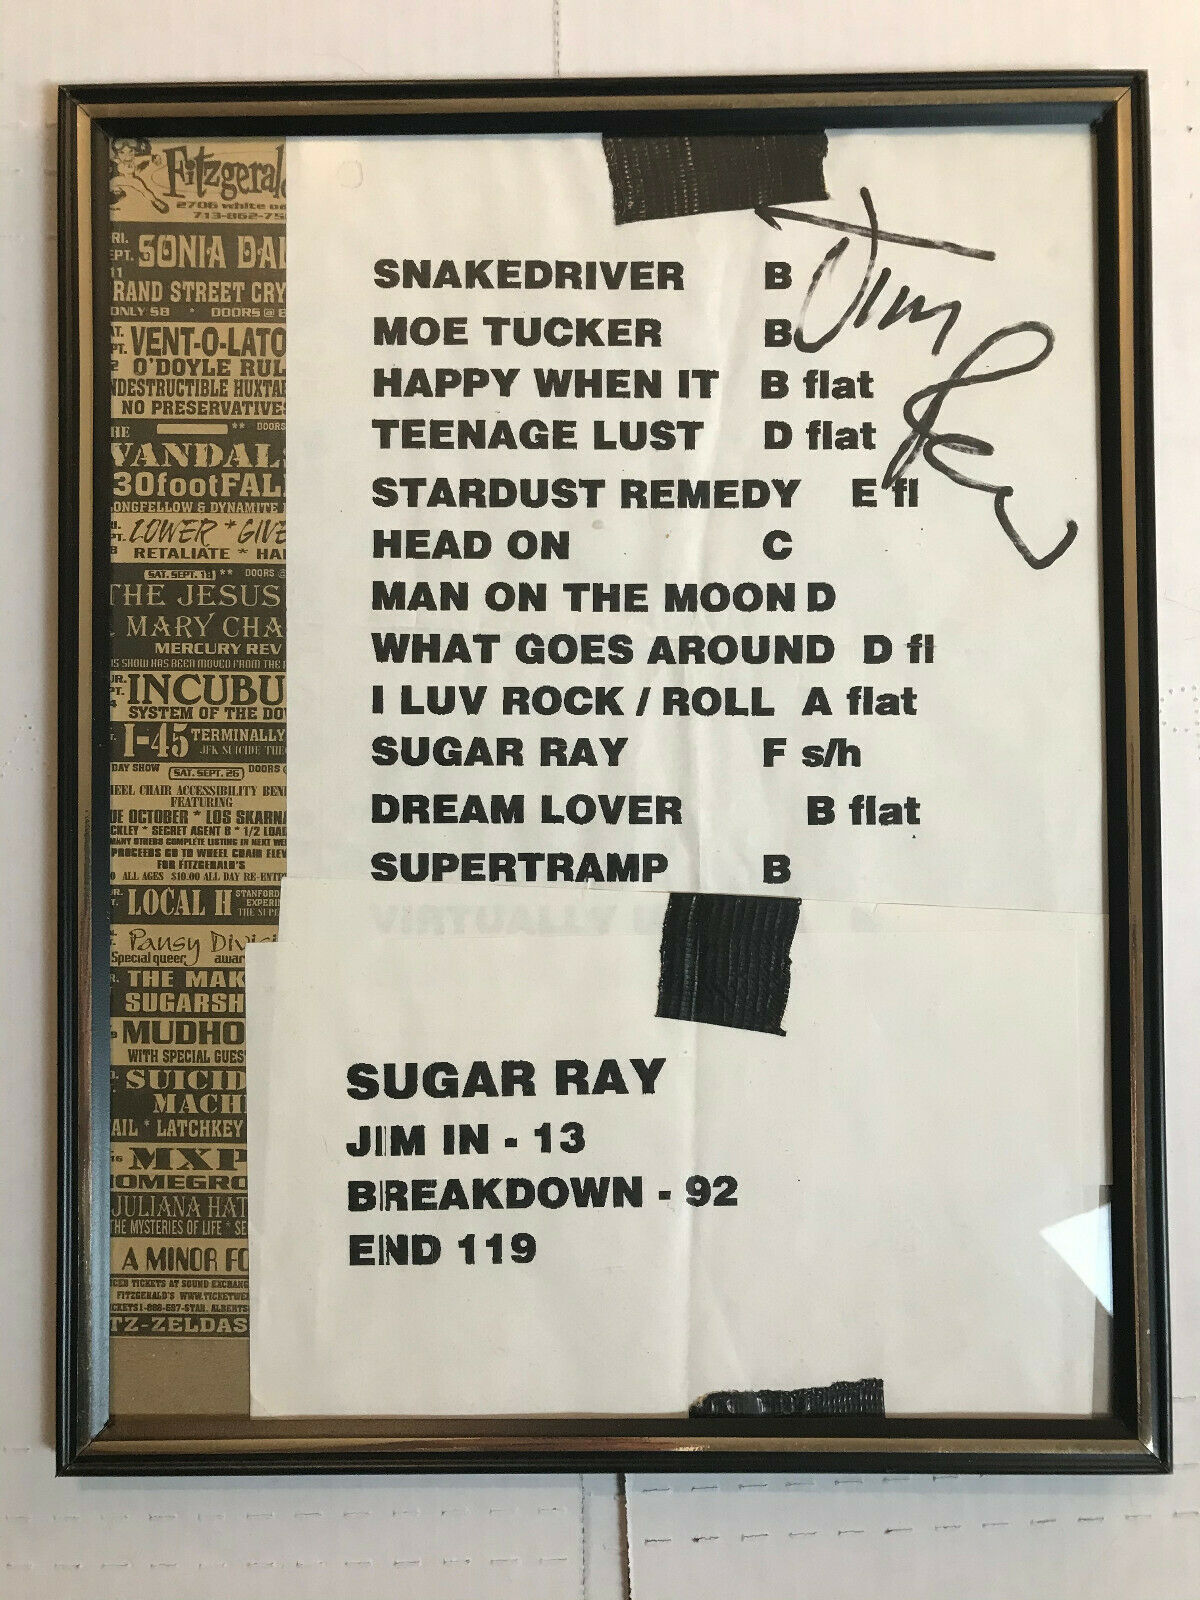 Fitzgeral
2706 white
713-862-75
SONIA DAL
RAND STREET CRY
ONLY $8 * DOORS @
VENT-O-LATO
O'DOYLE RUL
NDESTRUCTIBLE HUXTA
NO PRESERVATIVE
HE ** DOORS
VANDAL
30footFAL
ONGFELLOW & DYNAMITE
LOWER * GIVE
RETALIATE * HA
SAT. SEPT. 19 ** DOORS @
THE JESUS
MARY CHA
MERCURY REV
IS SHOW HAS BEEN MOVED FROM THE
INCUBU
SYSTEM OF THE DO
I-45 TERMINALLY
JFK SUICIDE THE
DAY SHOW SAT. SEPT. 26 DOORS
EEL CHAIR ACCESSIBILITY BEN
FEATURING
UE OCTOBER * LOS SKARNA
CKLEY * SECRET AGENT 8 * 1/2 LOA
MANY OTHERS COMPLETE LISTING IN NEXT WE
PROCEEDS GO TO WHEEL CHAIR ELEV
FOR FITZGERALD'S
ALL AGES $10.00 ALL DAY RE-ENT
LOCAL H STANFORD
EXPERI
Pansy Divi
Special queer awar
THE MAK
SUGARSH
MUDHO
WITH SPECIAL GUES
SUICID
MACH
AIL * LATCHKEY
MXP
OMEGRO
JULIANA HAT
THE MYSTERIES OF LIFE * SE
A MINOR FO
CED TICKETS AT SOUND EXCHANG
FITZGERALD'S WWW.TICKETWE
CKETS 1-888-597-STAR. ALBERTS
TZ-ZELDAS
SNAKEDRIVER B
MOE TUCKER B
HAPPY WHEN IT B flat
TEENAGE LUST D flat
STARDUST REMEDY E fl
HEAD ON C
MAN ON THE MOON D
WHAT GOES AROUND D fl
I LUV ROCK / ROLL A flat
SUGAR RAY F s/h
DREAM LOVER B flat
SUPERTRAMP B
VIRTUALLY
Jim
SUGAR RAY
JIM IN - 13
BREAKDOWN - 92
END 119